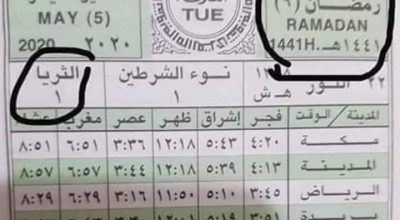 رمضان (٩)
RAMADAN
١٤٤١هـ 1441H.
MAY (5)
2020 ٢٠٢٠
TUE
الثريا
١
نوء الشرطين
١
هـ ش
الثور
٢٢
المدينة / الوقت فجر إشراق ظهر عصر مغرب عشاء
مكة ٤:٢٠ ٥:٤٣ ١٢:١٨ ٣:٣٦ ٦:٥١ ٨:٥١
المدينة ٤:١٣ ٥:٣٩ ١٢:١٨ ٣:٤٤ ٦:٥٧ ٨:٥٧
الرياض ٣:٤٥ ٥:٠٩ ١١:٥٠ ٣:١٦ ٦:٢٩ ٨:٢٩